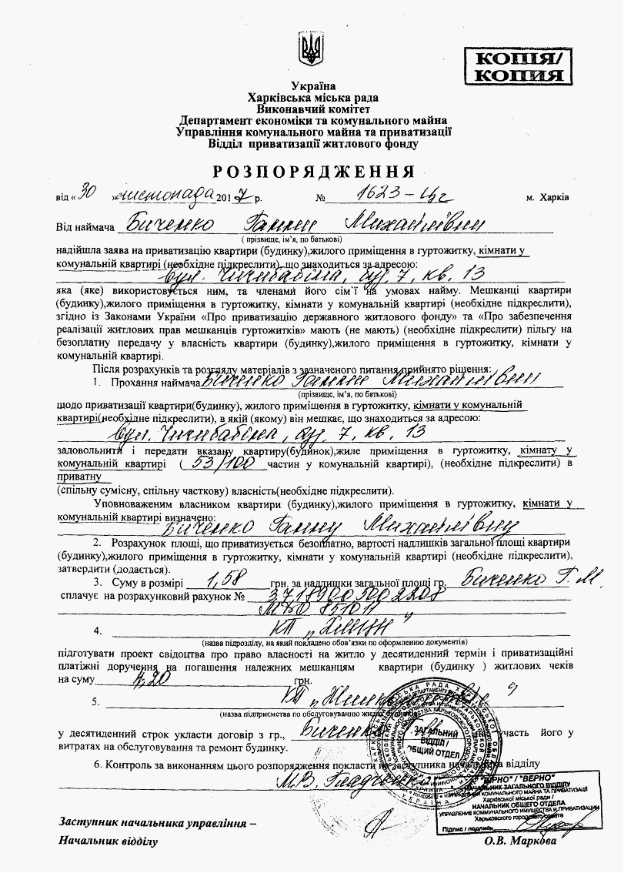 КОПІЯ/
КОПИЯ
Україна
Харківська міська рада
Виконавчий комітет
Департамент економіки та комунального майна
Управління комунального майна та приватизації
Відділ приватизації житлового фонду
РОЗПОРЯДЖЕННЯ
від «30 » листопада 2017 р. № 1623-  м. Харків
Від наймача Биченко Ганни Михайлівни
( прізвище, ім'я, по батькові)
надійшла заява на приватизацію квартири (будинку), жилого приміщення в гуртожитку, кімнати у
комунальній квартирі (необхідне підкреслити), що знаходиться за адресою:
вул. Чичибабіна, буд. 7, кв. 13
яка (яке) використовується ним, та членами його сім'ї на умовах найму. Мешканці квартири
(будинку),жилого приміщення в гуртожитку, кімнати у комунальній квартирі (необхідне підкреслити),
згідно із Законами України «Про приватизацію державного житлового фонду» та «Про забезпечення
реалізації житлових прав мешканців гуртожитків» мають (не мають) (необхідне підкреслити) пільгу на
безоплатну передачу у власність квартири (будинку),жилого приміщення в гуртожитку, кімнати у
комунальній квартирі.
Після розрахунків та розгляду матеріалів з зазначеного питання прийнято рішення:
1. Прохання наймача Биченко Ганни Михайлівни
(прізвище, ім'я, по батькові)
щодо приватизації квартири(будинку), жилого приміщення в гуртожитку, кімнати у комунальній
квартирі(необхідне підкреслити), в якій (якому) він мешкає, що знаходиться за адресою:
вул. Чичибабіна, буд. 7, кв. 13
задовольнити і передати вказану квартиру(будинок),жиле приміщення в гуртожитку, кімнату у
комунальній квартирі ( 53/100 частин у комунальній квартирі), (необхідне підкреслити) в
приватну
(спільну сумісну, спільну часткову) власність(необхідне підкреслити).
Уповноваженим власником квартири (будинку),жилого приміщення в гуртожитку, кімнати у
комунальній квартирі визначено: Биченко Ганну Михайлівну
2. Розрахунок площі, що приватизується безоплатно, вартості надлишків загальної площі квартири
(будинку),жилого приміщення в гуртожитку, кімнати у комунальній квартирі (необхідне підкреслити),
затвердити (додається).
3. Суму в розмірі 1,58 грн. за надлишки загальної площі гр. Биченко Г.М.
сплачує на розрахунковий рахунок № 37189005002208
МФО 851011
4. КП
(назва підрозділу, на який покладено обов'язки по оформленню документів)
підготувати проект свідоцтва про право власності на житло у десятиденний термін і приватизаційні
платіжні доручення на погашення належних мешканцям квартири (будинку ) житлових чеків
на суму грн.
5. КП
(назва підприємства по обслуговуванню
у десятиденний строк укласти договір з гр., Биченко участь його у
витратах на обслуговування та ремонт будинку.
6. Контроль за виконанням цього розпорядження покласти на заступника начальника відділу
М.В.
ЗАГАЛЬНИЙ
ВІДДІЛ /
ОБЩИЙ ОТДЕЛ
УКРАЇНА
"ВІРНО" / "ВЕРНО"
НАЧАЛЬНИК ЗАГАЛЬНОГО ВІДДІЛУ
УПРАВЛІННЯ КОМУНАЛЬНОГО МАЙНА ТА ПРИВАТИЗАЦІЇ
Харківської міської ради /
НАЧАЛЬНИК ОБЩЕГО ОТДЕЛА
УПРАВЛЕНИЕ КОММУНАЛЬНОГО ИМУЩЕСТВА И ПРИВАТИЗАЦИИ
Харьковского городского совета
Підпис / подпись
Заступник начальника управління –
Начальник відділу О.В. Маркова